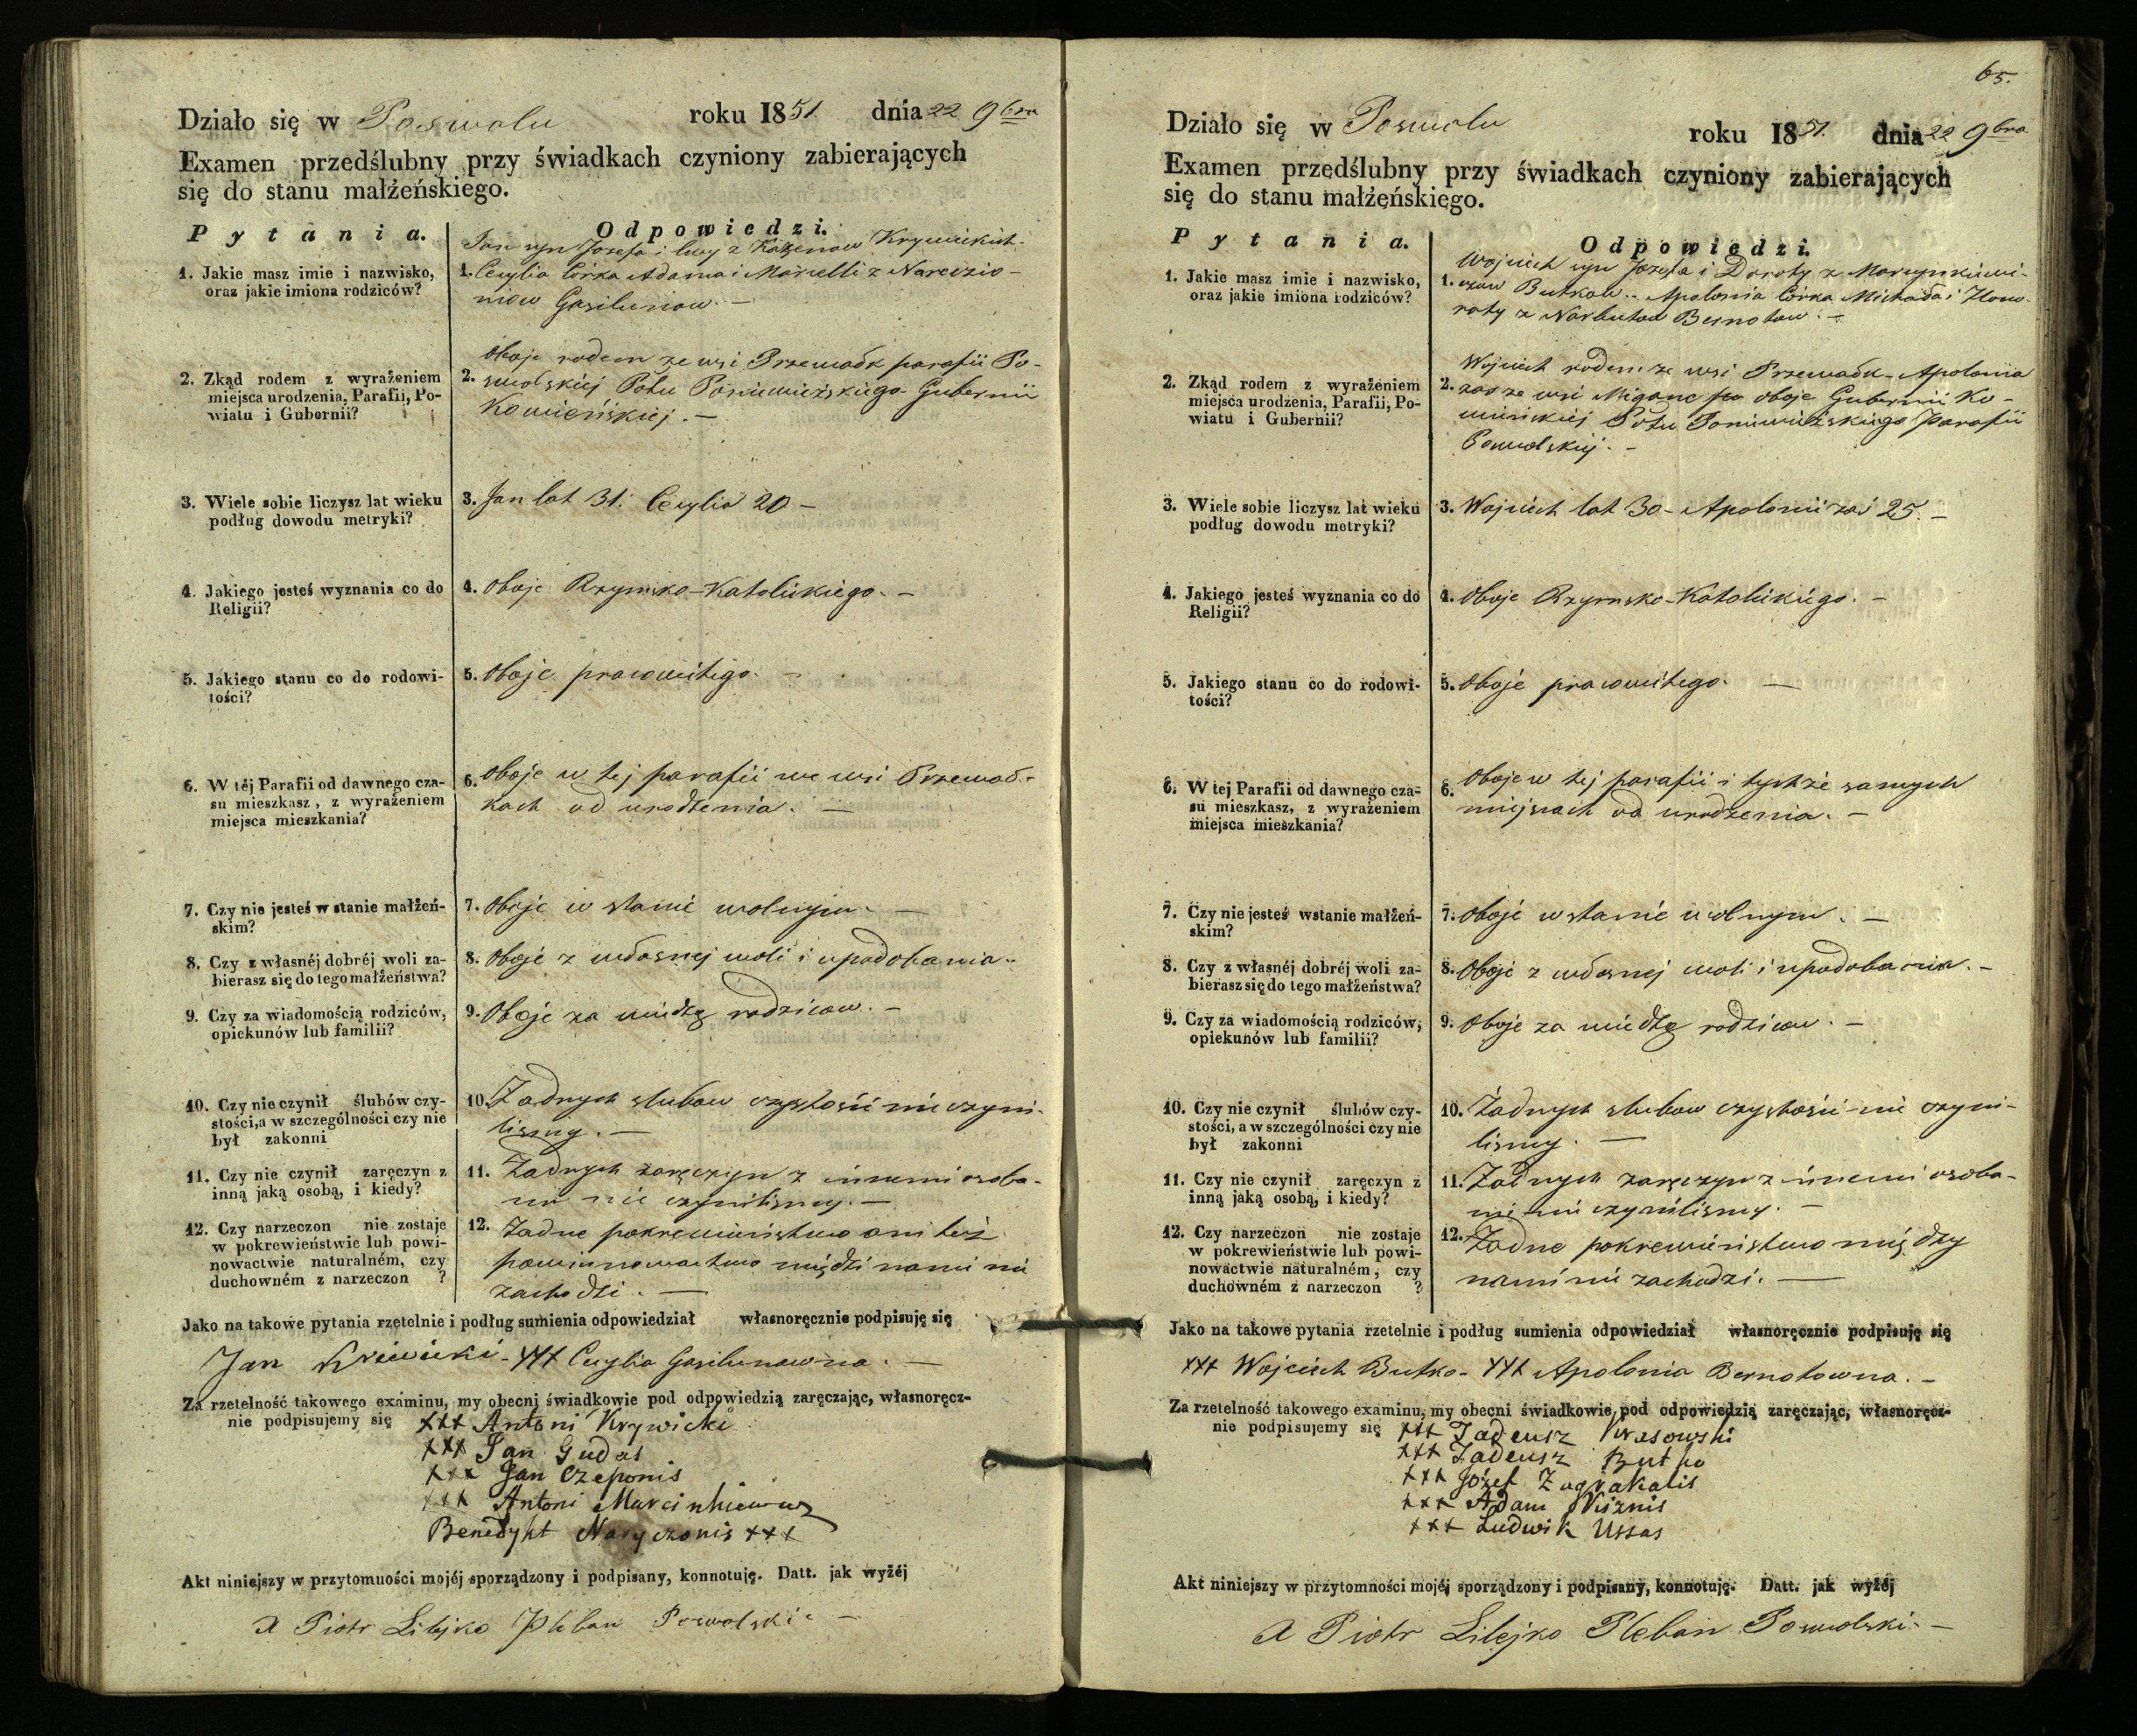 Działo się w Poswolu roku 1851. dnia 22 9bra
Examen przedślubny przy świadkach czyniony zabierających
się do stanu małżeńskiego.
Pytania. Odpowiedzi.
1. Jakie masz imie i nazwisko,
oraz jakie imiona rodziców?
Jan syn Jozefa i Ewy z Krywickich.
1. Cecylia Córka Adama i Marcelli z Narcizio-
now Gasilunow. —
2. Zkąd rodem z wyrażeniem
miejsca urodzenia, Parafii, Po-
wiatu i Gubernii?
Oboje rodem ze wsi Przewadk parafii Po-
2. swolskiej Pottu Poniewiezskiego Gubernii
Kowieńskiej. —
3. Wiele sobie liczysz lat wieku
podług dowodu metryki?
3. Jan lat 31. Cecylia 20 —
4. Jakiego jesteś wyznania co do
Religii?
4. Oboje Rzymsko-Katolickiego. —
5. Jakiego stanu co do rodowi-
tości?
5. Oboje prawowitego. —
6. W téj Parafii od dawnego cza-
su mieszkasz, z wyrażeniem
miejsca mieszkania?
6. Oboje w tej parafii we wsi Przewad-
kach od urodzenia. —
7. Czy nie jesteś w stanie małżeń-
skim?
7. Oboje w stanie wolnym. —
8. Czy z własnéj dobréj woli za-
bierasz się do tego małżeństwa?
8. Oboje z własnej woli i upodobania. -
9. Czy za wiadomością rodziców,
opiekunów lub familii?
9. Oboje za wiedzą rodzicow. —
10. Czy nie czynił ślubów czy-
stości, a w szczególności czy nie
był zakonni
10. Żadnych slubow czystosci nie czyni-
lismy. —
11. Czy nie czynił zaręczyn z
inną jaką osobą, i kiedy?
11. Żadnych zaręczyn z innemi osoba-
mi nie czynilismy. —
12. Czy narzeczon nie zostaje
w pokrewieństwie lub powi-
nowactwie naturalném, czy
duchowném z narzeczon ?
12. Żadne pokrewieństwo ani też
powinnowactwo między nami nie
zachodzi. —
Jako na takowe pytania rzetelnie i podług sumienia odpowiedział własnoręcznie podpisuję się
Jan Kriwicki - xxx Cecylia Gasilunowna. —
Za rzetelność takowego examinu, my obecni świadkowie pod odpowiedzią zaręczając, własnoręcz-
nie podpisujemy się xxx Antoni Krywicki
xxx Jan Gudas
xxx Jan Czeponis
xxx Antoni Marcinkiewicz
Benedykt Naryczonis xxx
Akt niniejszy w przytomności mojéj sporządzony i podpisany, konnotuję. Datt. jak wyżéj
X Piotr Lilejko Pleban Poswolski —
65.
Działo się w Poswolu roku 1851. dnia 22 9bra
Examen przedślubny przy świadkach czyniony zabierających
się do stanu małżeńskiego.
Pytania. Odpowiedzi.
1. Jakie masz imie i nazwisko,
oraz jakie imiona rodziców?
Wojciech syn Jozefa i Doroty z Marcynkiewi-
1. czow Butkow. - Apolonia Córka Michała i Hono-
raty z Narbutow Bernotow. —
2. Zkąd rodem z wyrażeniem
miejsca urodzenia, Parafii, Po-
wiatu i Gubernii?
Wojciech rodem ze wsi Przewadk - Apolonia
2. zas ze wsi Migonc oboje Gubernii Ko-
wieńskiej Pottu Poniewiezskiego Parafii
Poswolskiej. —
3. Wiele sobie liczysz lat wieku
podług dowodu metryki?
3. Wojciech lat 30 - Apolonii zaś 25. —
4. Jakiego jesteś wyznania co do
Religii?
4. Oboje Rzymsko-Katolickiego. —
5. Jakiego stanu co do rodowi-
tości?
5. Oboje prawowitego. —
6. W tej Parafii od dawnego cza-
su mieszkasz, z wyrażeniem
miejsca mieszkania?
6. Oboje w tej parafii i tychże samych
miejscach od urodzenia. —
7. Czy nie jesteś wstanie małżeń-
skim?
7. Oboje w stanie wolnym. —
8. Czy z własnéj dobréj woli za-
bierasz się do tego małżeństwa?
8. Oboje z własnej woli i upodobania. —
9. Czy za wiadomością rodziców,
opiekunów lub familii?
9. Oboje za wiedzą rodzicow. —
10. Czy nie czynił ślubów czy-
stości, a w szczególności czy nie
był zakonni
10. Żadnych slubow czystosci nie czyni-
lismy. —
11. Czy nie czynił zaręczyn z
inną jaką osobą, i kiedy?
11. Żadnych zaręczyn z innemi osoba-
mi nie czynilismy. —
12. Czy narzeczon nie zostaje
w pokrewieństwie lub powi-
nowactwie naturalném, czy
duchowném z narzeczon ?
12. Żadne pokrewieństwo między
nami nie zachodzi. —
Jako na takowe pytania rzetelnie i podług sumienia odpowiedział własnoręcznie podpisuję się
xxx Wojciech Butko - xxx Apolonia Bernotowna. —
Za rzetelność takowego examinu, my obecni świadkowie pod odpowiedzią zaręczając, własnoręcz-
nie podpisujemy się xxx Tadeusz Wasowski
xxx Tadeusz Butko
xxx Józef Zagrakalis
xxx Adam Wiznis
xxx Ludwik Ussas
Akt niniejszy w przytomności mojéj sporządzony i podpisany, konnotuję. Datt. jak wyżéj
X Piotr Lilejko Pleban Poswolski. —